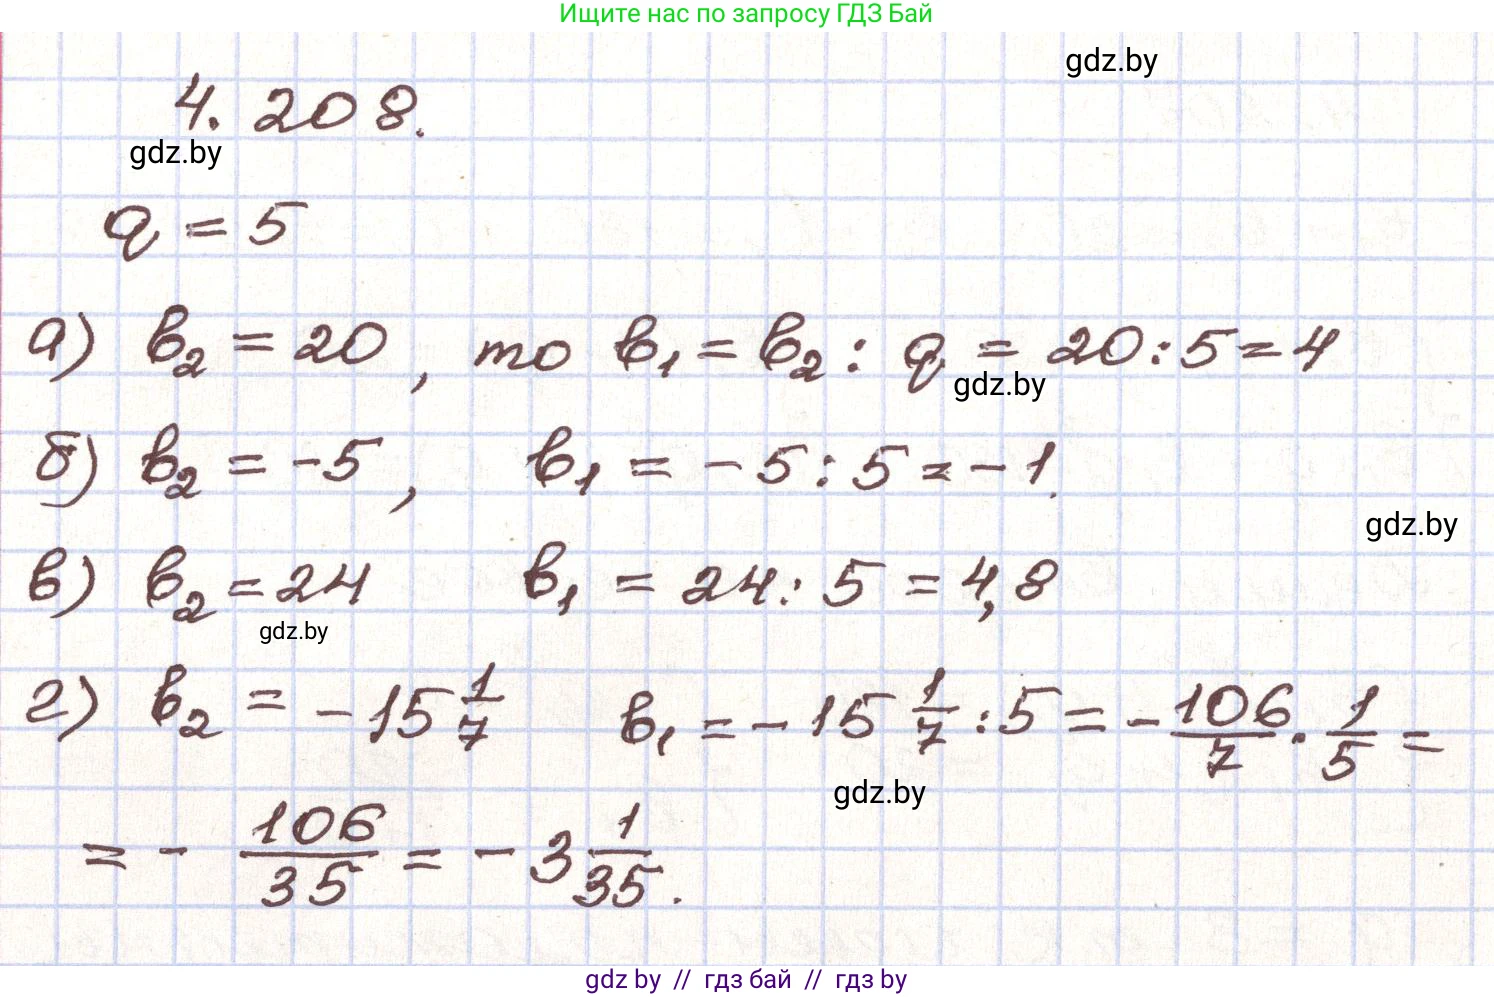 Ищите нас по запросу ГДЗ Бай
gdz.by
4.208.
gdz.by
q = 5
а) b₂ = 20, то b₁ = b₂ : q = 20 : 5 = 4
gdz.by
б) b₂ = -5, b₁ = -5 : 5 = -1.
gdz.by
в) b₂ = 24 b₁ = 24 : 5 = 4,8
gdz.by
г) b₂ = -15 1/7 b₁ = -15 1/7 : 5 = -106/7 · 1/5 =
gdz.by
= - 106/35 = -3 1/35.
gdz by // гдз бай // гдз by